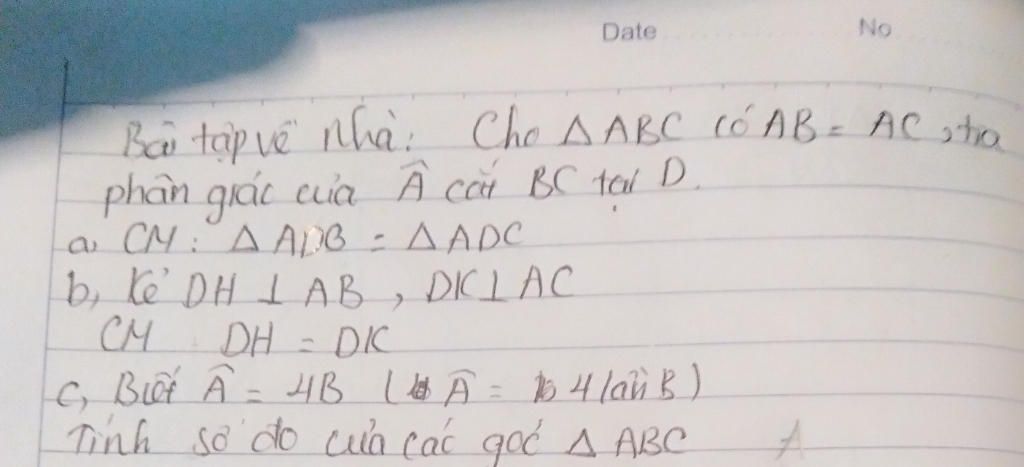 Date No
Bài tập về nhà: Cho △ABC có AB = AC, tia
phân giác của Â cắt BC tại D.
a, CM: △ADB = △ADC
b, Kẻ DH ⊥ AB, DK ⊥ AC
CM DH = DK
c, Biết Â = 4B ( Â = 4 lần B)
Tính số đo của các góc △ABC A